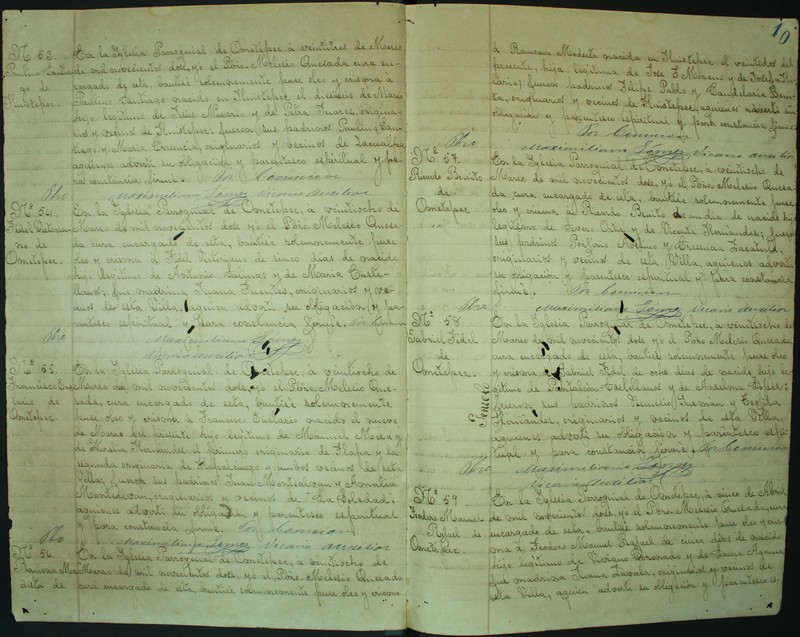 Nº 53.
Paulino Santia-
go de
Huistepec.
En la Iglesia Parroquial de Ometepec á veintitres de Marzo
de mil novecientos doce, yo el Pbro. Melesio Quesada cura en-
cargado de esta, bauticé solemnemente puse oleo y crisma á
Paulino Santiago nacido en Huistepec el dieciseis de Marzo
hijo legítimo de Jesus Nazario y de Petra Juarez, origina-
rios y vecinos de Huistepec: fueron sus padrinos Paulino San-
tiago y Maria Crecencia, originarios y vecinos de
aquienes advertí su obligación y parentesco espiritual y pa-
ra constancia firmé. Por Comision
Pbro Maximiliano Gomez Vicario Auxiliar
Nº 54.
Fidel Victoria-
no de
Ometepec.
En la Iglesia Parroquial de Ometepec, á veintiocho de
Marzo de mil novecientos doce yo el Pbro. Melesio Quesa-
da cura encargado de esta, bauticé solemnemente puse
oleo y crisma á Fidel Victoriano de cinco dias de nacido
hijo legítimo de Antonio Salinas y de Maria Caste-
llanos; fue madrina Juana Fuentes, originarios y ve-
cinos de esta Villa, aquien advertí su obligación y pa-
rentesco espiritual y para constancia firmé. Por Comision
Pbro Maximiliano Gomez
Vicario Auxiliar
Nº 55.
Francisco Eu-
lario de
Ometepec.
En la Iglesia Parroquial de Ometepec, á veintiocho de
Marzo de mil novecientos doce, yo el Pbro. Melesio Que-
sada, cura encargado de esta, bauticé solemnemente
puse oleo y crisma á Francisco nacido el nueve
de Marzo del presente hijo legítimo de Maximino Meza y
de Hernandez el primero originario de Tlapa y la
segunda originaria de Igualapa y ambos vecinos de esta
Villa, fueron sus padrinos Juan Montealvan y
Montealvan, originarios y vecinos de "La Soledad",
aquienes advertí su obligación y parentesco espiritual
y para constancia firmé. Por Comision
Pbro Maximiliano Gomez Vicario Auxiliar
Nº 56.
Ramona Mo-
desta de
En la Iglesia Parroquial de Ometepec, á veintiocho de
Marzo de mil novecientos doce, yo el Pbro. Melesio Quesada
cura encargado de esta, bauticé solemnemente puse oleo y crisma
10
á Ramona Modesta nacida en Huistepec el veintidos del
presente, hija legítima de Jose F. Moreno y de Josefa Hi-
lario; fueron padrinos Felipe Pablo y Candelaria Beni-
ta, originarios y vecinos de Huistepec, aquienes advertí su
obligación y parentesco espiritual y para constancia firmé.
Por Comision
Pbro Maximiliano Gomez Vicario Auxiliar
Nº 57.
Ricardo Benito
de
Ometepec
En la Iglesia Parroquial de Ometepec, á veintiocho de
Marzo de mil novecientos doce, yo el Pbro. Melesio Quesa-
da, cura encargado de esta, bauticé solemnemente puse
oleo y crisma á Ricardo Benito de un dia de nacido hijo
legítimo de y de Vicente Hernandez; fueron
sus padrinos Porfirio Avelino y Crecencia
originarios y vecinos de esta Villa, aquienes advertí
su obligación y parentesco espiritual y para constancia
firmé. Por Comision
Pbro Maximiliano Gomez Vicario Auxiliar
Nº 58
Gabriel Fidel
de
Ometepec.
En la Iglesia Parroquial de Ometepec, á veintiocho de
Marzo de mil novecientos doce yo el Pbro Melesio Quesada
cura encargado de esta, bauticé solemnemente puse oleo
y crisma á Gabriel Fidel de ocho dias de nacido hijo le-
gítimo de Pantaleon Castellanos y de Anselma Lopez;
fueron sus padrinos Guzman y Teofila
Hernandez, originarios y vecinos de esta Villa,
aquienes advertí su obligación y parentesco espiri-
tual y para constancia firmé. Por Comision
Pbro Maximiliano Gomez
Vicario Auxiliar
Nº 59
Teodoro Manuel
Rafael de
Ometepec.
En la Iglesia Parroquial de Ometepec, á cinco de Abril
de mil novecientos doce, yo el Pbro. Melesio Quesada, cura
encargado de esta, bauticé solemnemente puse oleo y cris-
ma á Teodoro Manuel Rafael de cinco dias de nacido
hijo legítimo de Viviano Coronado y de Laura
fue madrina Juana Zavala, originarios y vecinos de
esta Villa, aquien advertí su obligación y parentesco es-